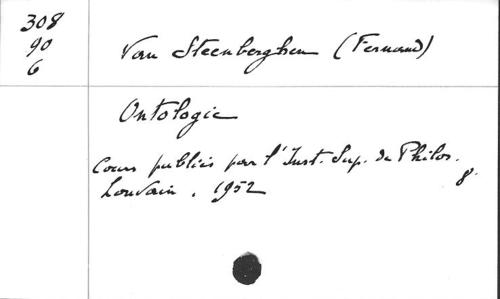 308
90
6
Van Steenberghen (Fernand)
Ontologie
Cours publiés par l'Inst. Sup. de Philos.
Louvain. 1952
8.